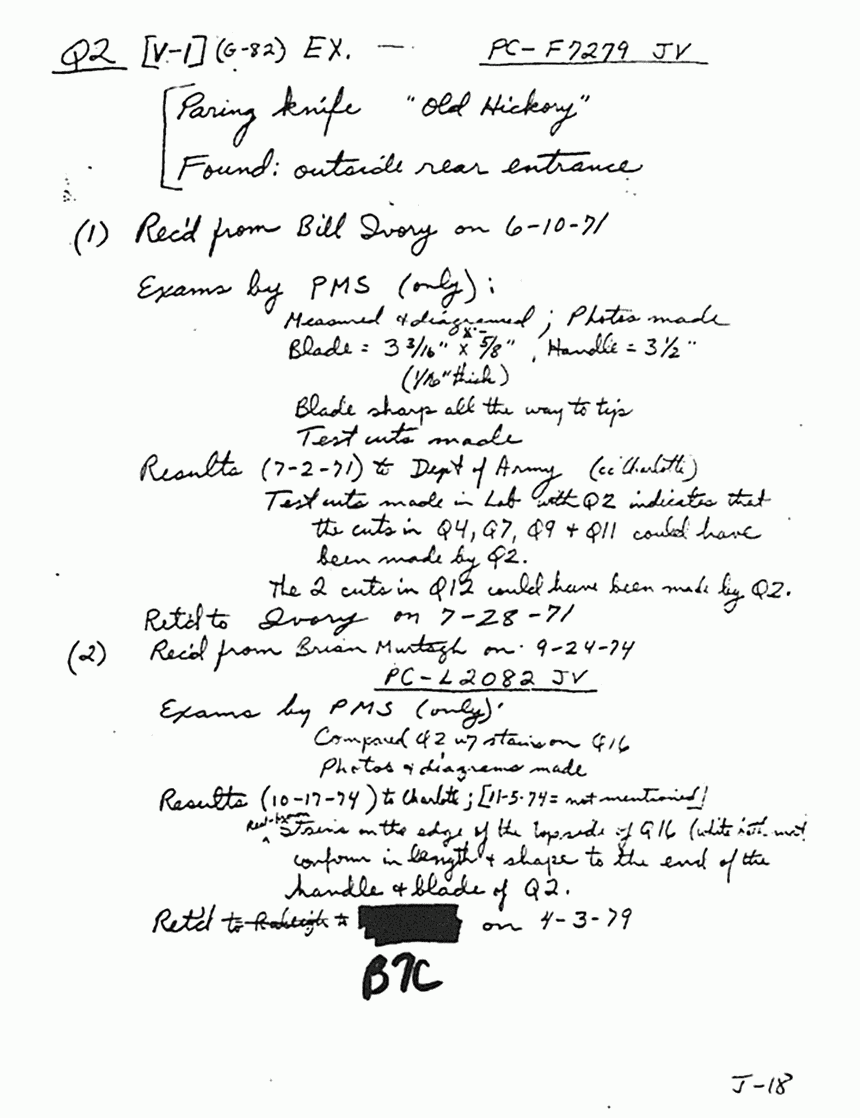 Q2 [V-1] (G-82) EX. — PC-F7279 JV
Paring knife "Old Hickory"
Found: outside rear entrance
(1) Rec'd from Bill Ivory on 6-10-71
Exams by PMS (only):
Measured & diagramed; Photos made
Blade = 3 3/16" x 5/8", Handle = 3 1/2"
(1/16" thick)
Blade sharp all the way to tip
Test cuts made
Results (7-2-71) to Dept of Army (cc Charlotte)
Test cuts made in Lab with Q2 indicates that
the cuts in Q4, Q7, Q9 + Q11 could have
been made by Q2.
The 2 cuts in Q12 could have been made by Q2.
Ret'd to Ivory on 7-28-71
(2) Rec'd from Brian Murtagh on 9-24-74
PC-L2082 JV
Exams by PMS (only)
Compared Q2 w/ stains on Q16
Photos & diagrams made
Results (10-17-74) to Charlotte; [11-5-74 = not mentioned]
Red-brown
Stains on the edge of the topside of Q16 (white bath mat
conform in length & shape to the end of the
handle & blade of Q2.
Ret'd to Raleigh to on 4-3-79
B7C
J-18